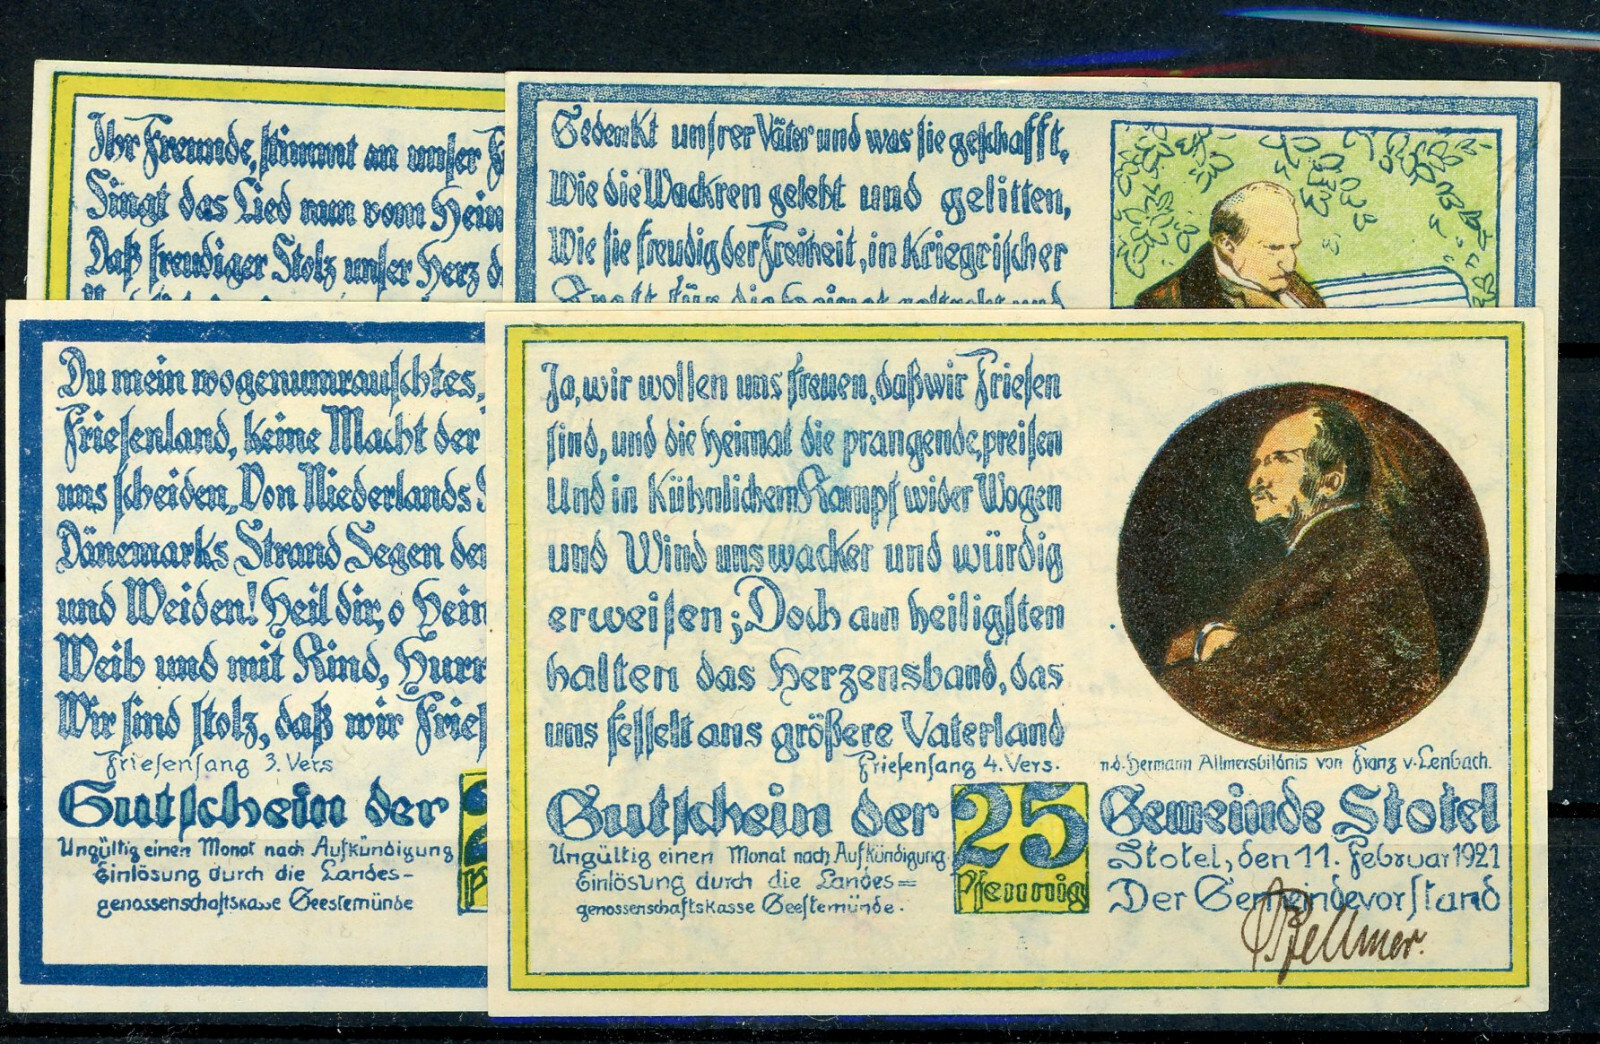 Ihr Freunde, stimmt an unser
Singt das Lied nun vom Heim
Daß freudiger Stolz unser Herz d
Gedenkt unsrer Väter und was sie geschafft,
Wie die Wackren gelebt und gelitten,
Wie sie freudig der Freiheit, in kriegrischer
Kraft für die Heimat gestrebt und
Du mein wogenumrauschtes,
Friesenland, keine Macht der
uns scheiden, Von Niederlands
Dänemarks Strand Segen den
und Weiden! Heil dir, o Heim
Weib und mit Kind, Hurr
Wir sind stolz, daß wir Fries
Friesensang 3. Vers
Gutschein der 2
Ungültig einen Monat nach Aufkündigung
Einlösung durch die Landes-
genossenschaftskasse Geestemünde
Ja, wir wollen uns freuen, daß wir Friesen
sind, und die Heimat die prangende, preisen
Und in kühnlichem Kampf wider Wogen
und Wind uns wacker und würdig
erweisen; Doch am heiligsten
halten das Herzensband, das
uns fesselt ans größere Vaterland
Friesensang 4. Vers.
n. d. Hermann Allmersbildnis von Franz v. Lenbach.
Gutschein der 25 Gemeinde Stotel
Ungültig einen Monat nach Aufkündigung. Stotel, den 11. Februar 1921
Einlösung durch die Landes=
genossenschaftskasse Geestemünde. Pfennig Der Gemeindevorstand